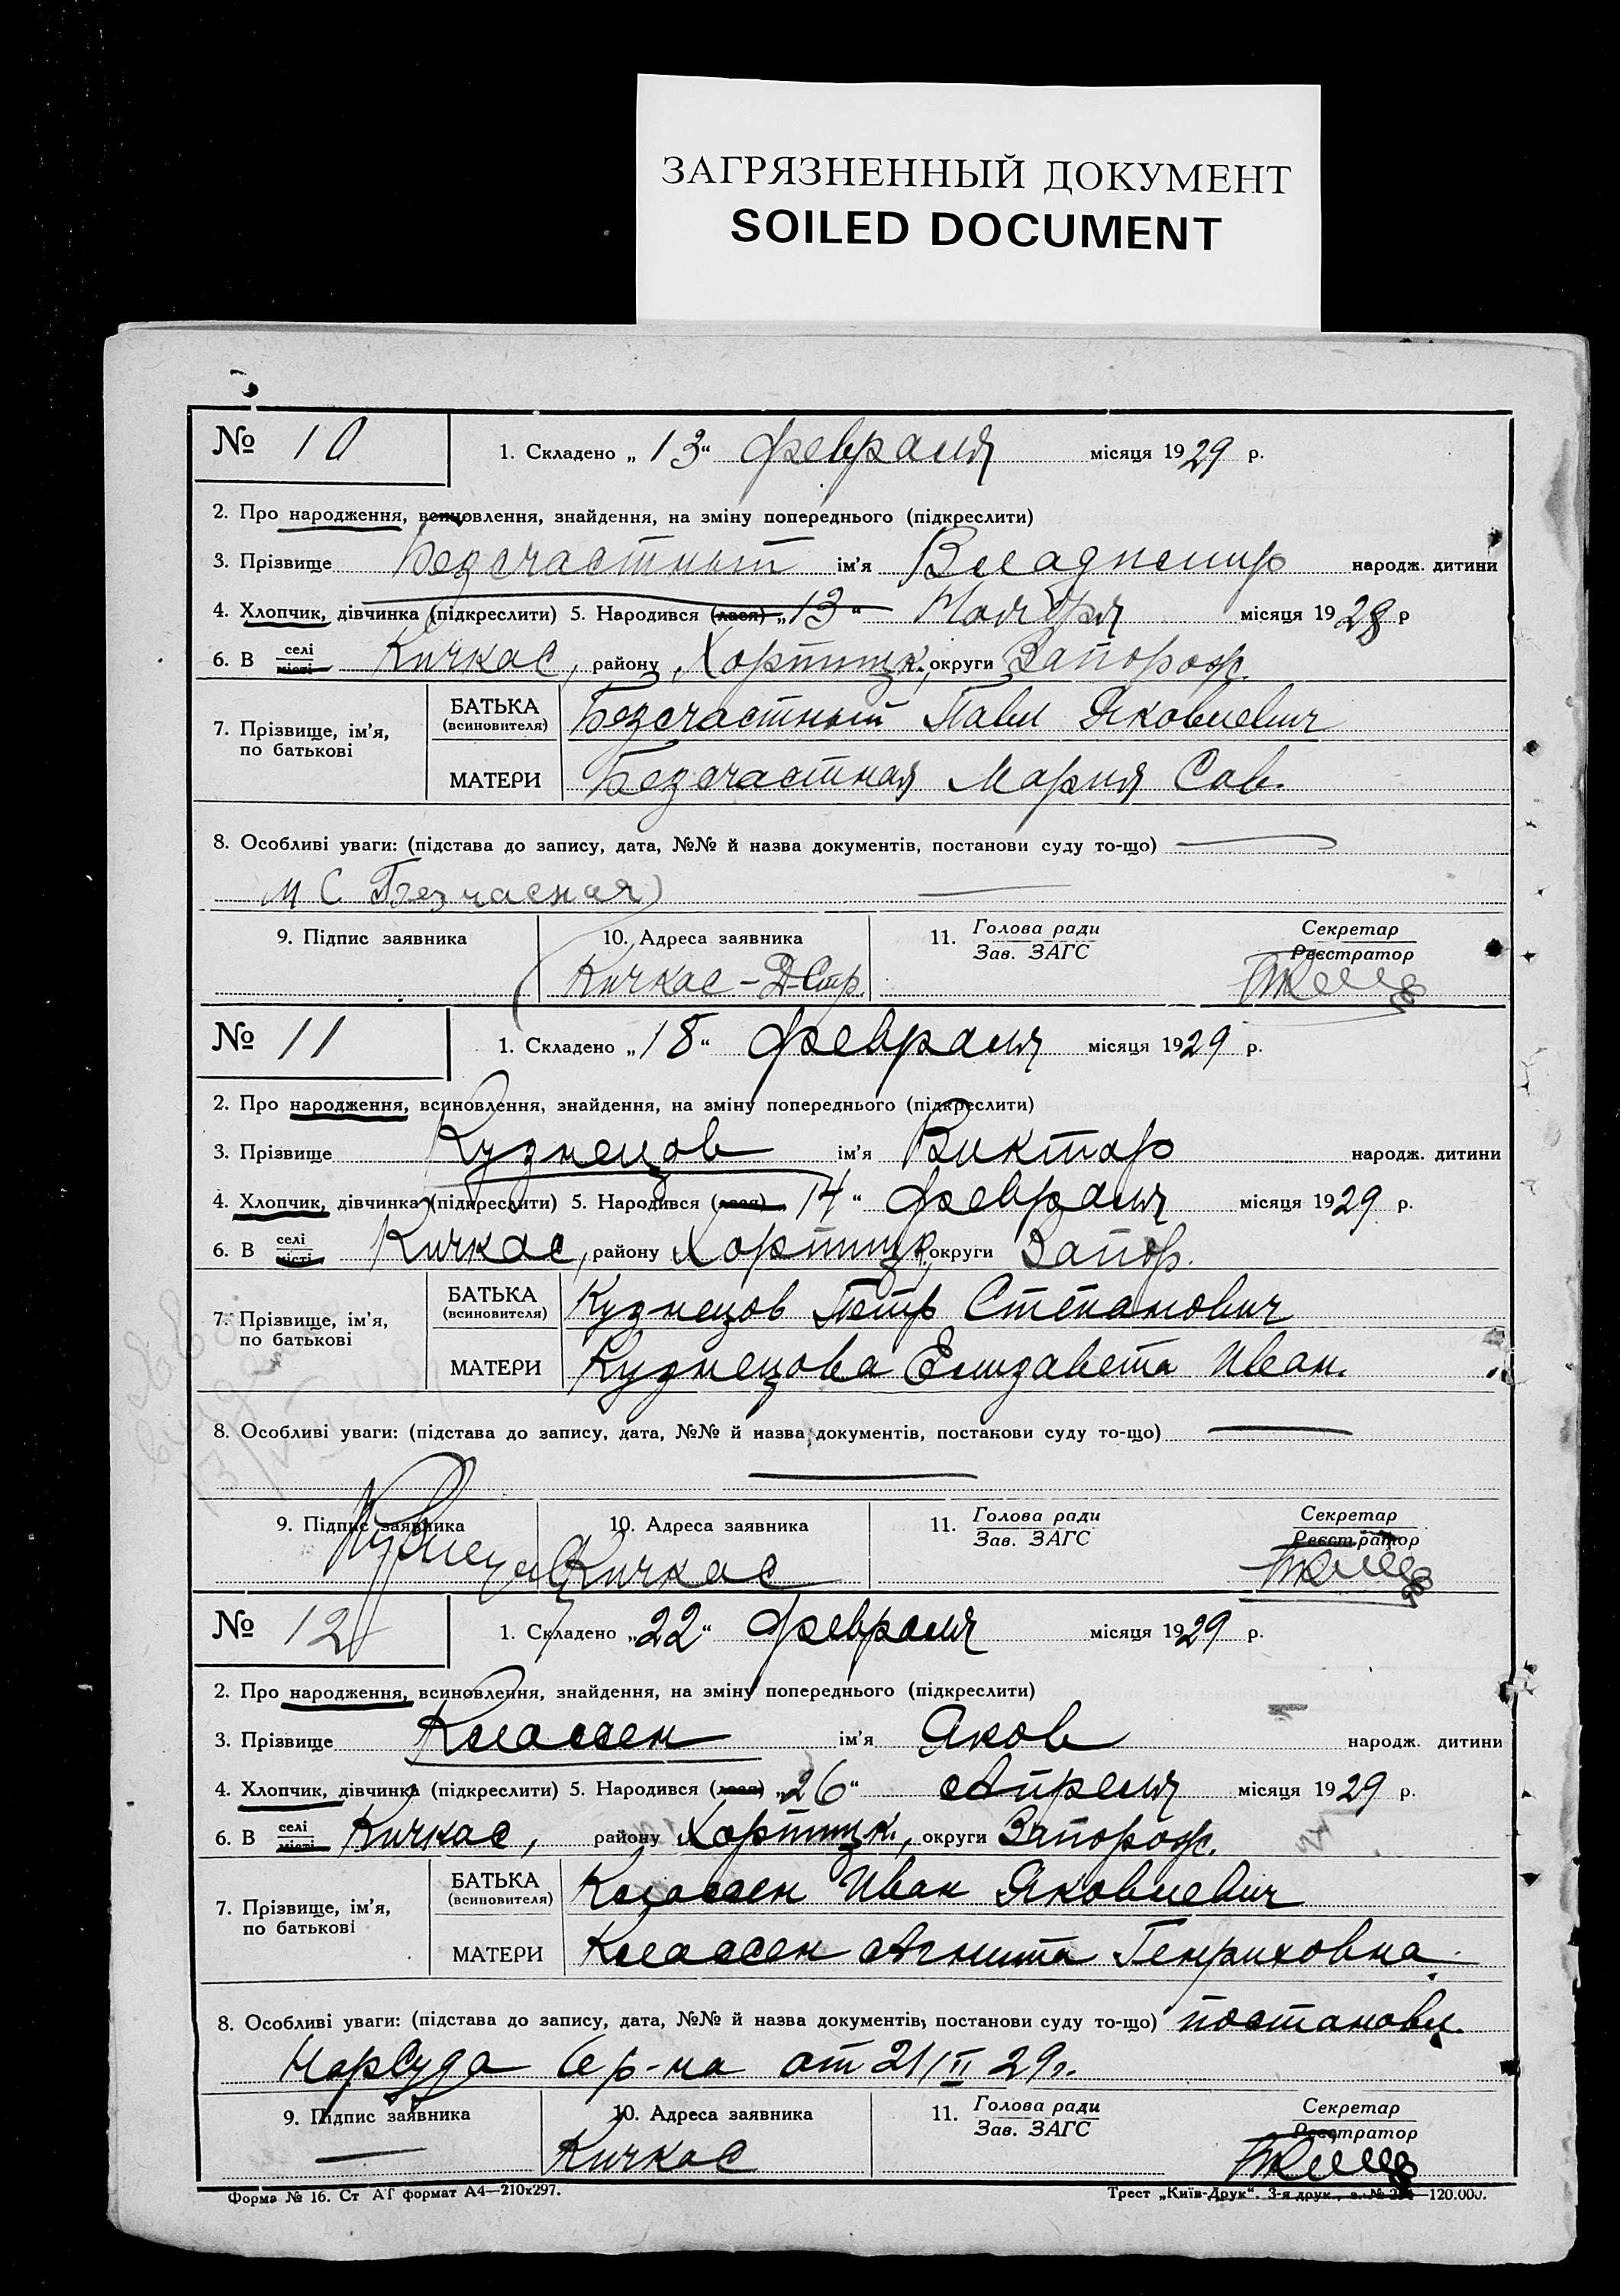 ЗАГРЯЗНЕННЫЙ ДОКУМЕНТ
SOILED DOCUMENT
№ 10
1. Складено „13“ февраля місяця 1929 р.
2. Про народження, всиновлення, знайдення, на зміну попереднього (підкреслити)
3. Прізвище Безсчастный ім'я Владимир народж. дитини
4. Хлопчик, дівчинка (підкреслити) 5. Народився (лася) „13“ Ноября місяця 1928 р
6. В селі місті Кичкас, району Хортицк., округи Запорож.
7. Прізвище, ім'я, по батькові
БАТЬКА (всиновителя) Безсчастный Павел Яковлевич
МАТЕРИ Безсчастная Мария Сав.
8. Особливі уваги: (підстава до запису, дата, №№ й назва документів, постанови суду то-що)
М С Безчасная
9. Підпис заявника 10. Адреса заявника 11. Голова ради Зав. ЗАГС Секретар Реєстратор
Кичкас-Д-Стр.
№ 11
1. Складено „18“ февраля місяця 1929 р.
2. Про народження, всиновлення, знайдення, на зміну попереднього (підкреслити)
3. Прізвище Кузнецов ім'я Виктор народж. дитини
4. Хлопчик, дівчинка (підкреслити) 5. Народився (лася) „14“ февраля місяця 1929 р.
6. В селі місті Кичкас, району Хортицк., округи Запор.
7. Прізвище, ім'я, по батькові
БАТЬКА (всиновителя) Кузнецов Петр Степанович
МАТЕРИ Кузнецова Елизавета Иван.
8. Особливі уваги: (підстава до запису, дата, №№ й назва документів, постанови суду то-що)
9. Підпис заявника 10. Адреса заявника 11. Голова ради Зав. ЗАГС Секретар Реєстратор
Кичкас
№ 12
1. Складено „22“ февраля місяця 1929 р.
2. Про народження, всиновлення, знайдення, на зміну попереднього (підкреслити)
3. Прізвище Классен ім'я Яков народж. дитини
4. Хлопчик, дівчинка (підкреслити) 5. Народився (лася) „26“ Апреля місяця 1929 р.
6. В селі місті Кичкас, району Хортицк., округи Запорож.
7. Прізвище, ім'я, по батькові
БАТЬКА (всиновителя) Классен Иван Яковлевич
МАТЕРИ Классен Агнита Генриховна.
8. Особливі уваги: (підстава до запису, дата, №№ й назва документів, постанови суду то-що) постановл.
НарСуда 6 р-на от 21/II 29г.
9. Підпис заявника 10. Адреса заявника 11. Голова ради Зав. ЗАГС Секретар Реєстратор
Кичкас
Форма № 16. Ст АТ формат А4—210х297. Трест „Київ-Друк“. 3-я друк., з. № —120.000.